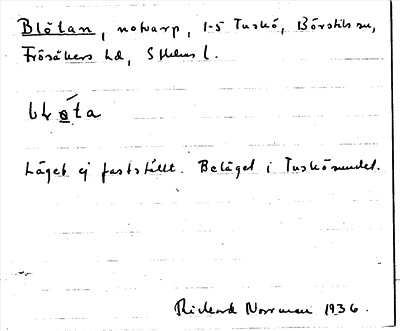 Blötan, notvarp, 1-5 Tuskö, Börstils sn,
Frösåkers hd, Sthlms l.
Läget ej fastställt. Beläget i Tuskösundet.
Rickard Norrman 1936.